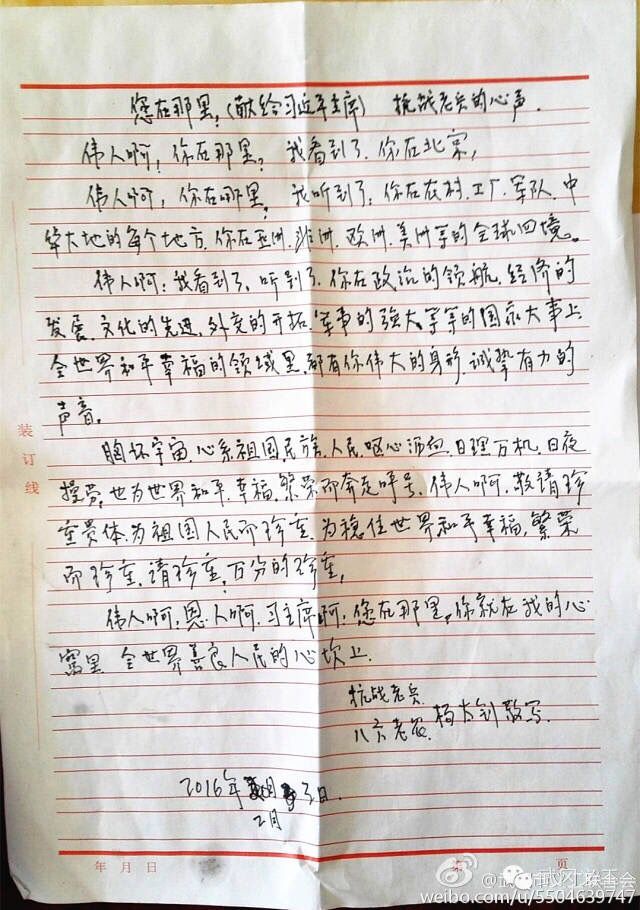 您在那里，(献给习近平主席) 抗战老兵的心声.
伟人啊，你在那里，我看到了.你在北京，
伟人啊，你在哪里，我听到了，你在农村.工厂.军队.中
华大地的每个地方.你在亚洲.非洲.欧洲.美洲等的全球四境。
伟人啊：我看到了，听到了.你在政治的领航.经济的
发展.文化的先进.外交的开拓.军事的强大等等的国家大事上
全世界和平幸福的领域里.都有你伟大的身影.诚挚有力的
声音。
胸怀宇宙.心系祖国民族.人民.呕心沥血.日理万机.日夜
操劳，也为世界和平.幸福.繁荣而奔走呼号.伟人啊.敬请珍
重贵体.为祖国人民而珍重.为稳住世界和平幸福，繁荣
而珍重.请珍重，百分的珍重，
伟人啊，恩人啊.习主席啊，您在那里，你就在我的心
窝里.全世界善良人民的心坎上.
抗战老兵
八六老农.杨太钊敬写.
2016年 月 3日.
2月
装订线
年月日
第 页
weibo.com/u/5504639747